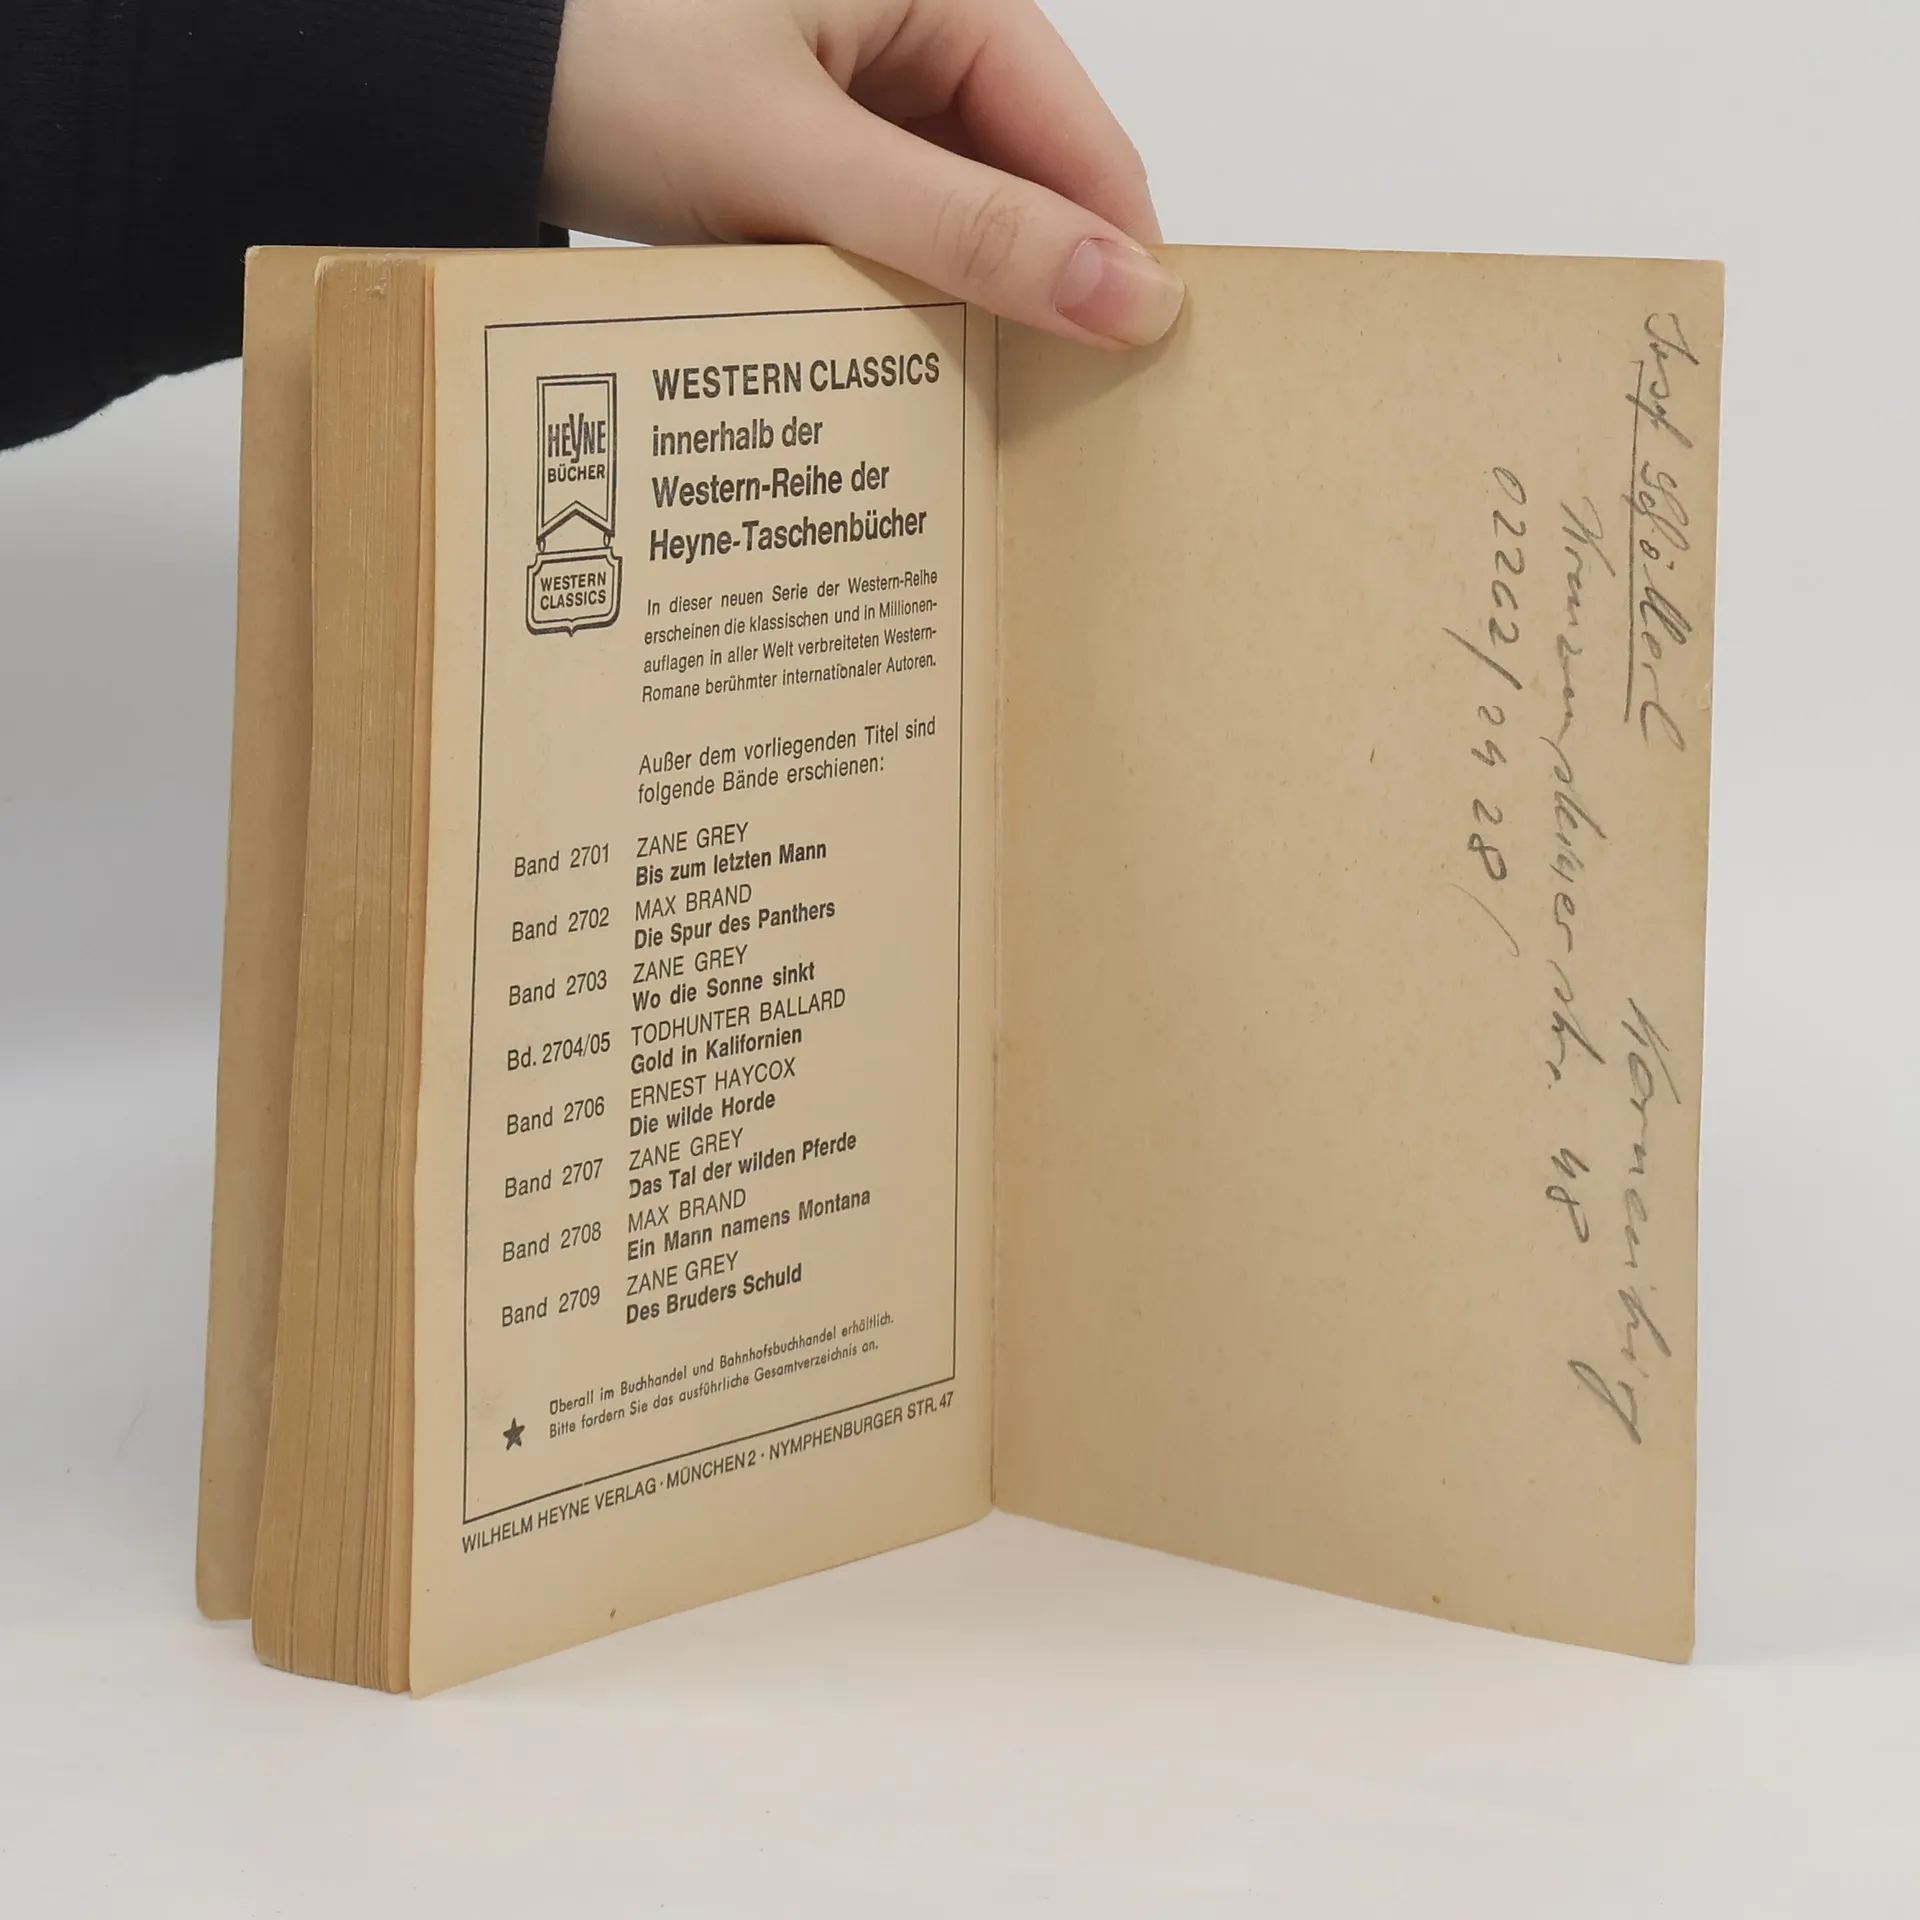 HEYNE
BÜCHER
WESTERN
CLASSICS
WESTERN CLASSICS
innerhalb der
Western-Reihe der
Heyne-Taschenbücher
In dieser neuen Serie der Western-Reihe
erscheinen die klassischen und in Millionen-
auflagen in aller Welt verbreiteten Western-
Romane berühmter internationaler Autoren.
Außer dem vorliegenden Titel sind
folgende Bände erschienen:
Band 2701 ZANE GREY
Bis zum letzten Mann
Band 2702 MAX BRAND
Die Spur des Panthers
Band 2703 ZANE GREY
Wo die Sonne sinkt
Bd. 2704/05 TODHUNTER BALLARD
Gold in Kalifornien
Band 2706 ERNEST HAYCOX
Die wilde Horde
Band 2707 ZANE GREY
Das Tal der wilden Pferde
Band 2708 MAX BRAND
Ein Mann namens Montana
Band 2709 ZANE GREY
Des Bruders Schuld
Überall im Buchhandel und Bahnhofsbuchhandel erhältlich.
Bitte fordern Sie das ausführliche Gesamtverzeichnis an.
WILHELM HEYNE VERLAG · MÜNCHEN 2 · NYMPHENBURGER STR. 47
48
02262/24 28